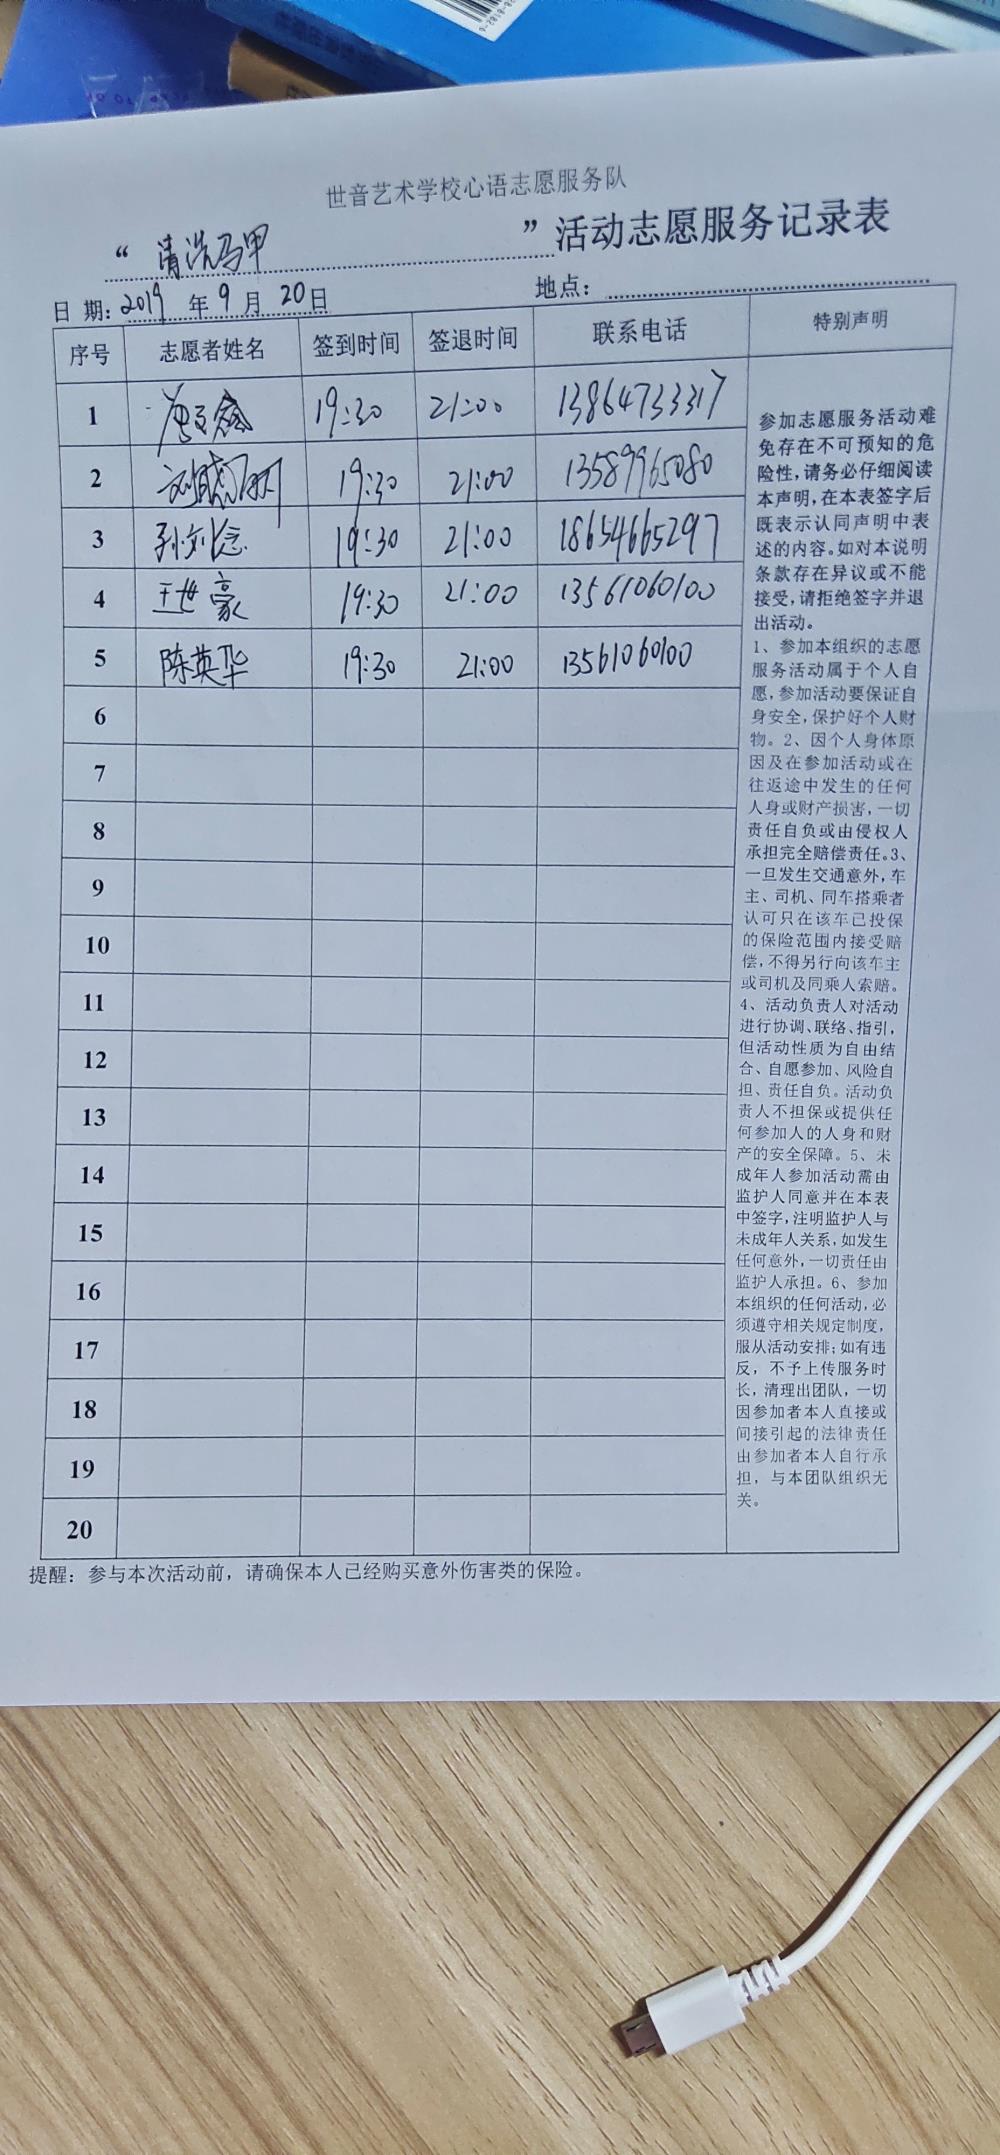 世音艺术学校心语志愿服务队
“ 清洗马甲 ”活动志愿服务记录表
日 期: 2019 年 9 月 20 日 地点:
序号 志愿者姓名 签到时间 签退时间 联系电话 特别声明
1 19:30 21:00 13864733317
2 19:30 21:00 13589965080
3 孙刘念 19:30 21:00 18654665297
4 王世豪 19:30 21:00 13561060100
5 陈英华 19:30 21:00 13561060100
6
7
8
9
10
11
12
13
14
15
16
17
18
19
20
参加志愿服务活动难
免存在不可预知的危
险性,请务必仔细阅读
本声明,在本表签字后
既表示认同声明中表
述的内容。如对本说明
条款存在异议或不能
接受,请拒绝签字并退
出活动。
1、参加本组织的志愿
服务活动属于个人自
愿,参加活动要保证自
身安全,保护好个人财
物。2、因个人身体原
因及在参加活动或在
往返途中发生的任何
人身或财产损害,一切
责任自负或由侵权人
承担完全赔偿责任。3、
一旦发生交通意外,车
主、司机、同车搭乘者
认可只在该车已投保
的保险范围内接受赔
偿,不得另行向该车主
或司机及同乘人索赔。
4、活动负责人对活动
进行协调、联络、指引,
但活动性质为自由结
合、自愿参加、风险自
担、责任自负。活动负
责人不担保或提供任
何参加人的人身和财
产的安全保障。5、未
成年人参加活动需由
监护人同意并在本表
中签字,注明监护人与
未成年人关系,如发生
任何意外,一切责任由
监护人承担。6、参加
本组织的任何活动,必
须遵守相关规定制度,
服从活动安排;如有违
反，不予上传服务时
长,清理出团队,一切
因参加者本人直接或
间接引起的法律责任
由参加者本人自行承
担，与本团队组织无
关。
提醒：参与本次活动前，请确保本人已经购买意外伤害类的保险。